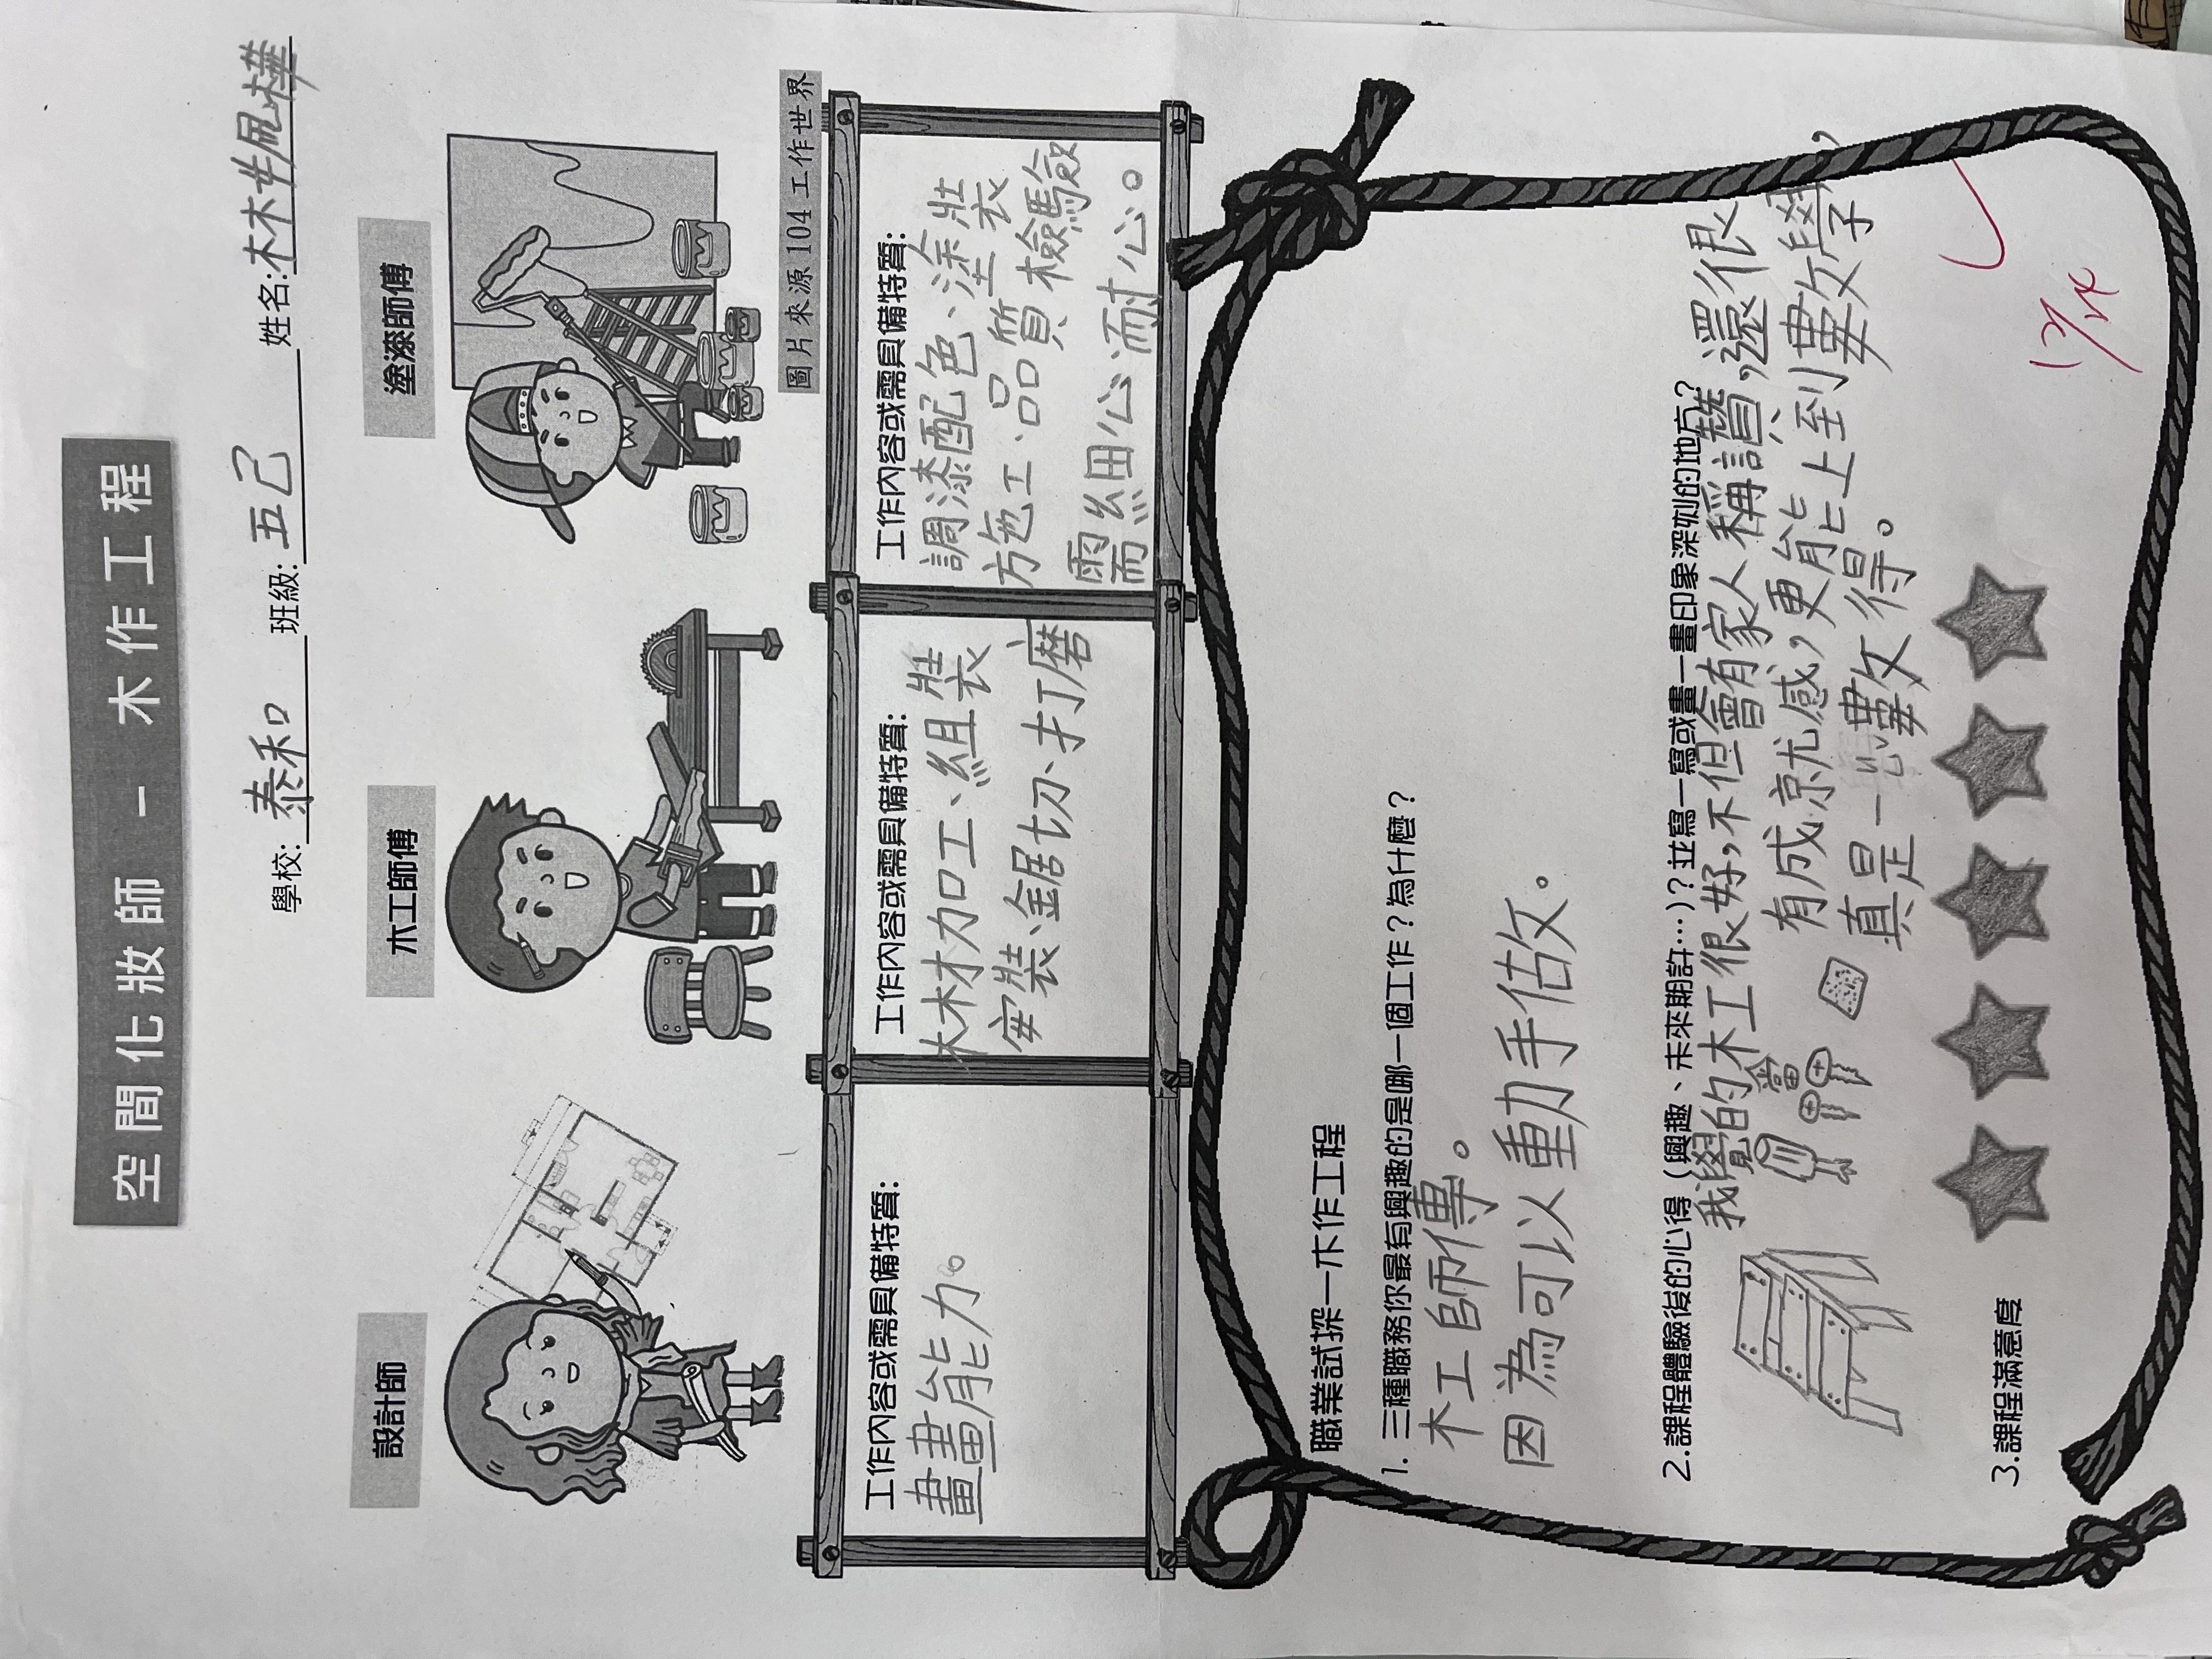 空間化妝師 - 木作工程
學校: 泰和 班級: 五己 姓名: 林姵樺
設計師
木工師傅
塗漆師傅
圖片來源 104 工作世界
工作內容或需具備特質:
畫畫能力。
工作內容或需具備特質:
木材加工、組裝
安裝、鋸切、打磨
工作內容或需具備特質:
調漆配色、塗裝
施工、品質檢驗
需細心、耐心。
職業試探—木作工程
1. 三種職務你最有興趣的是哪一個工作？為什麼？
木工師傅。
因為可以動手做。
2.課程體驗後的心得（興趣、未來期許…）？並寫一寫或畫一畫印象深刻的地方？
我覺的木工很好,不但會有家人稱讚,還很
有成就感,更能上到數學,
真是一數文得。
3.課程滿意度
12/24